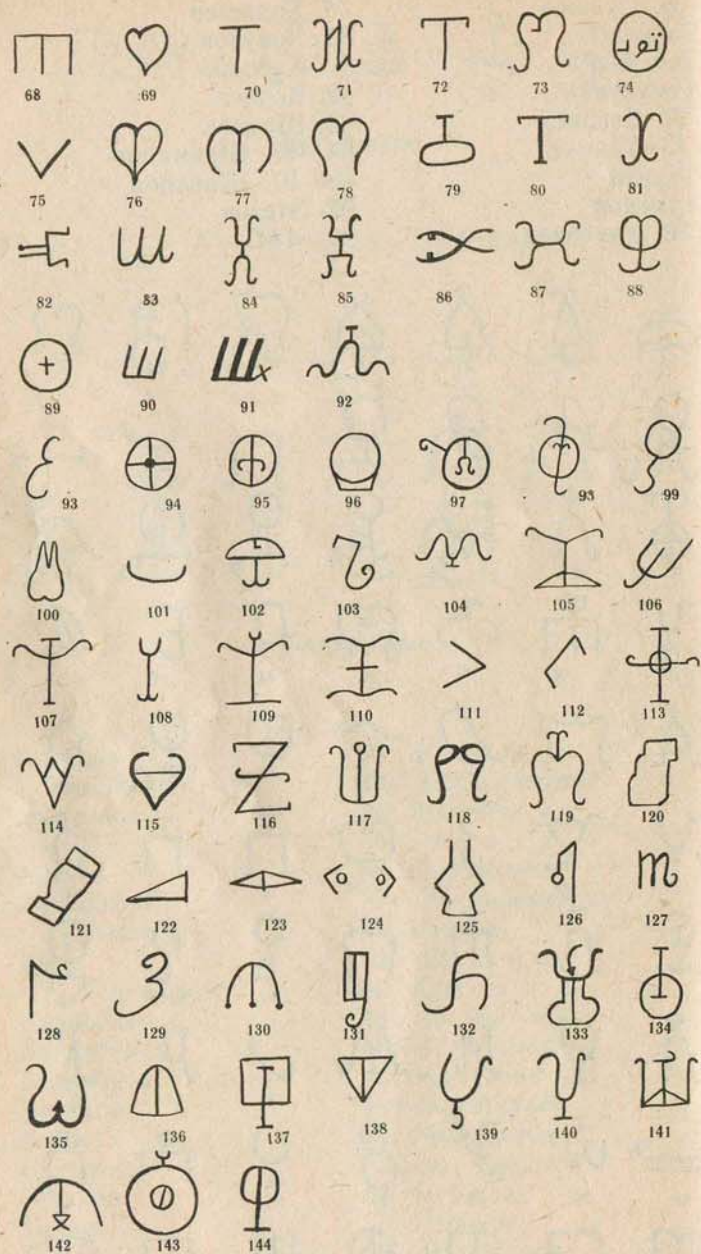 68 69 70 71 72 73 74
تود
75 76 77 78 79 80 81
82 83 84 85 86 87 88
89 90 91 92
93 94 95 96 97 93 99
100 101 102 103 104 105 106
107 108 109 110 111 112 113
114 115 116 117 118 119 120
121 122 123 124 125 126 127
128 129 130 131 132 133 134
135 136 137 138 139 140 141
142 143 144